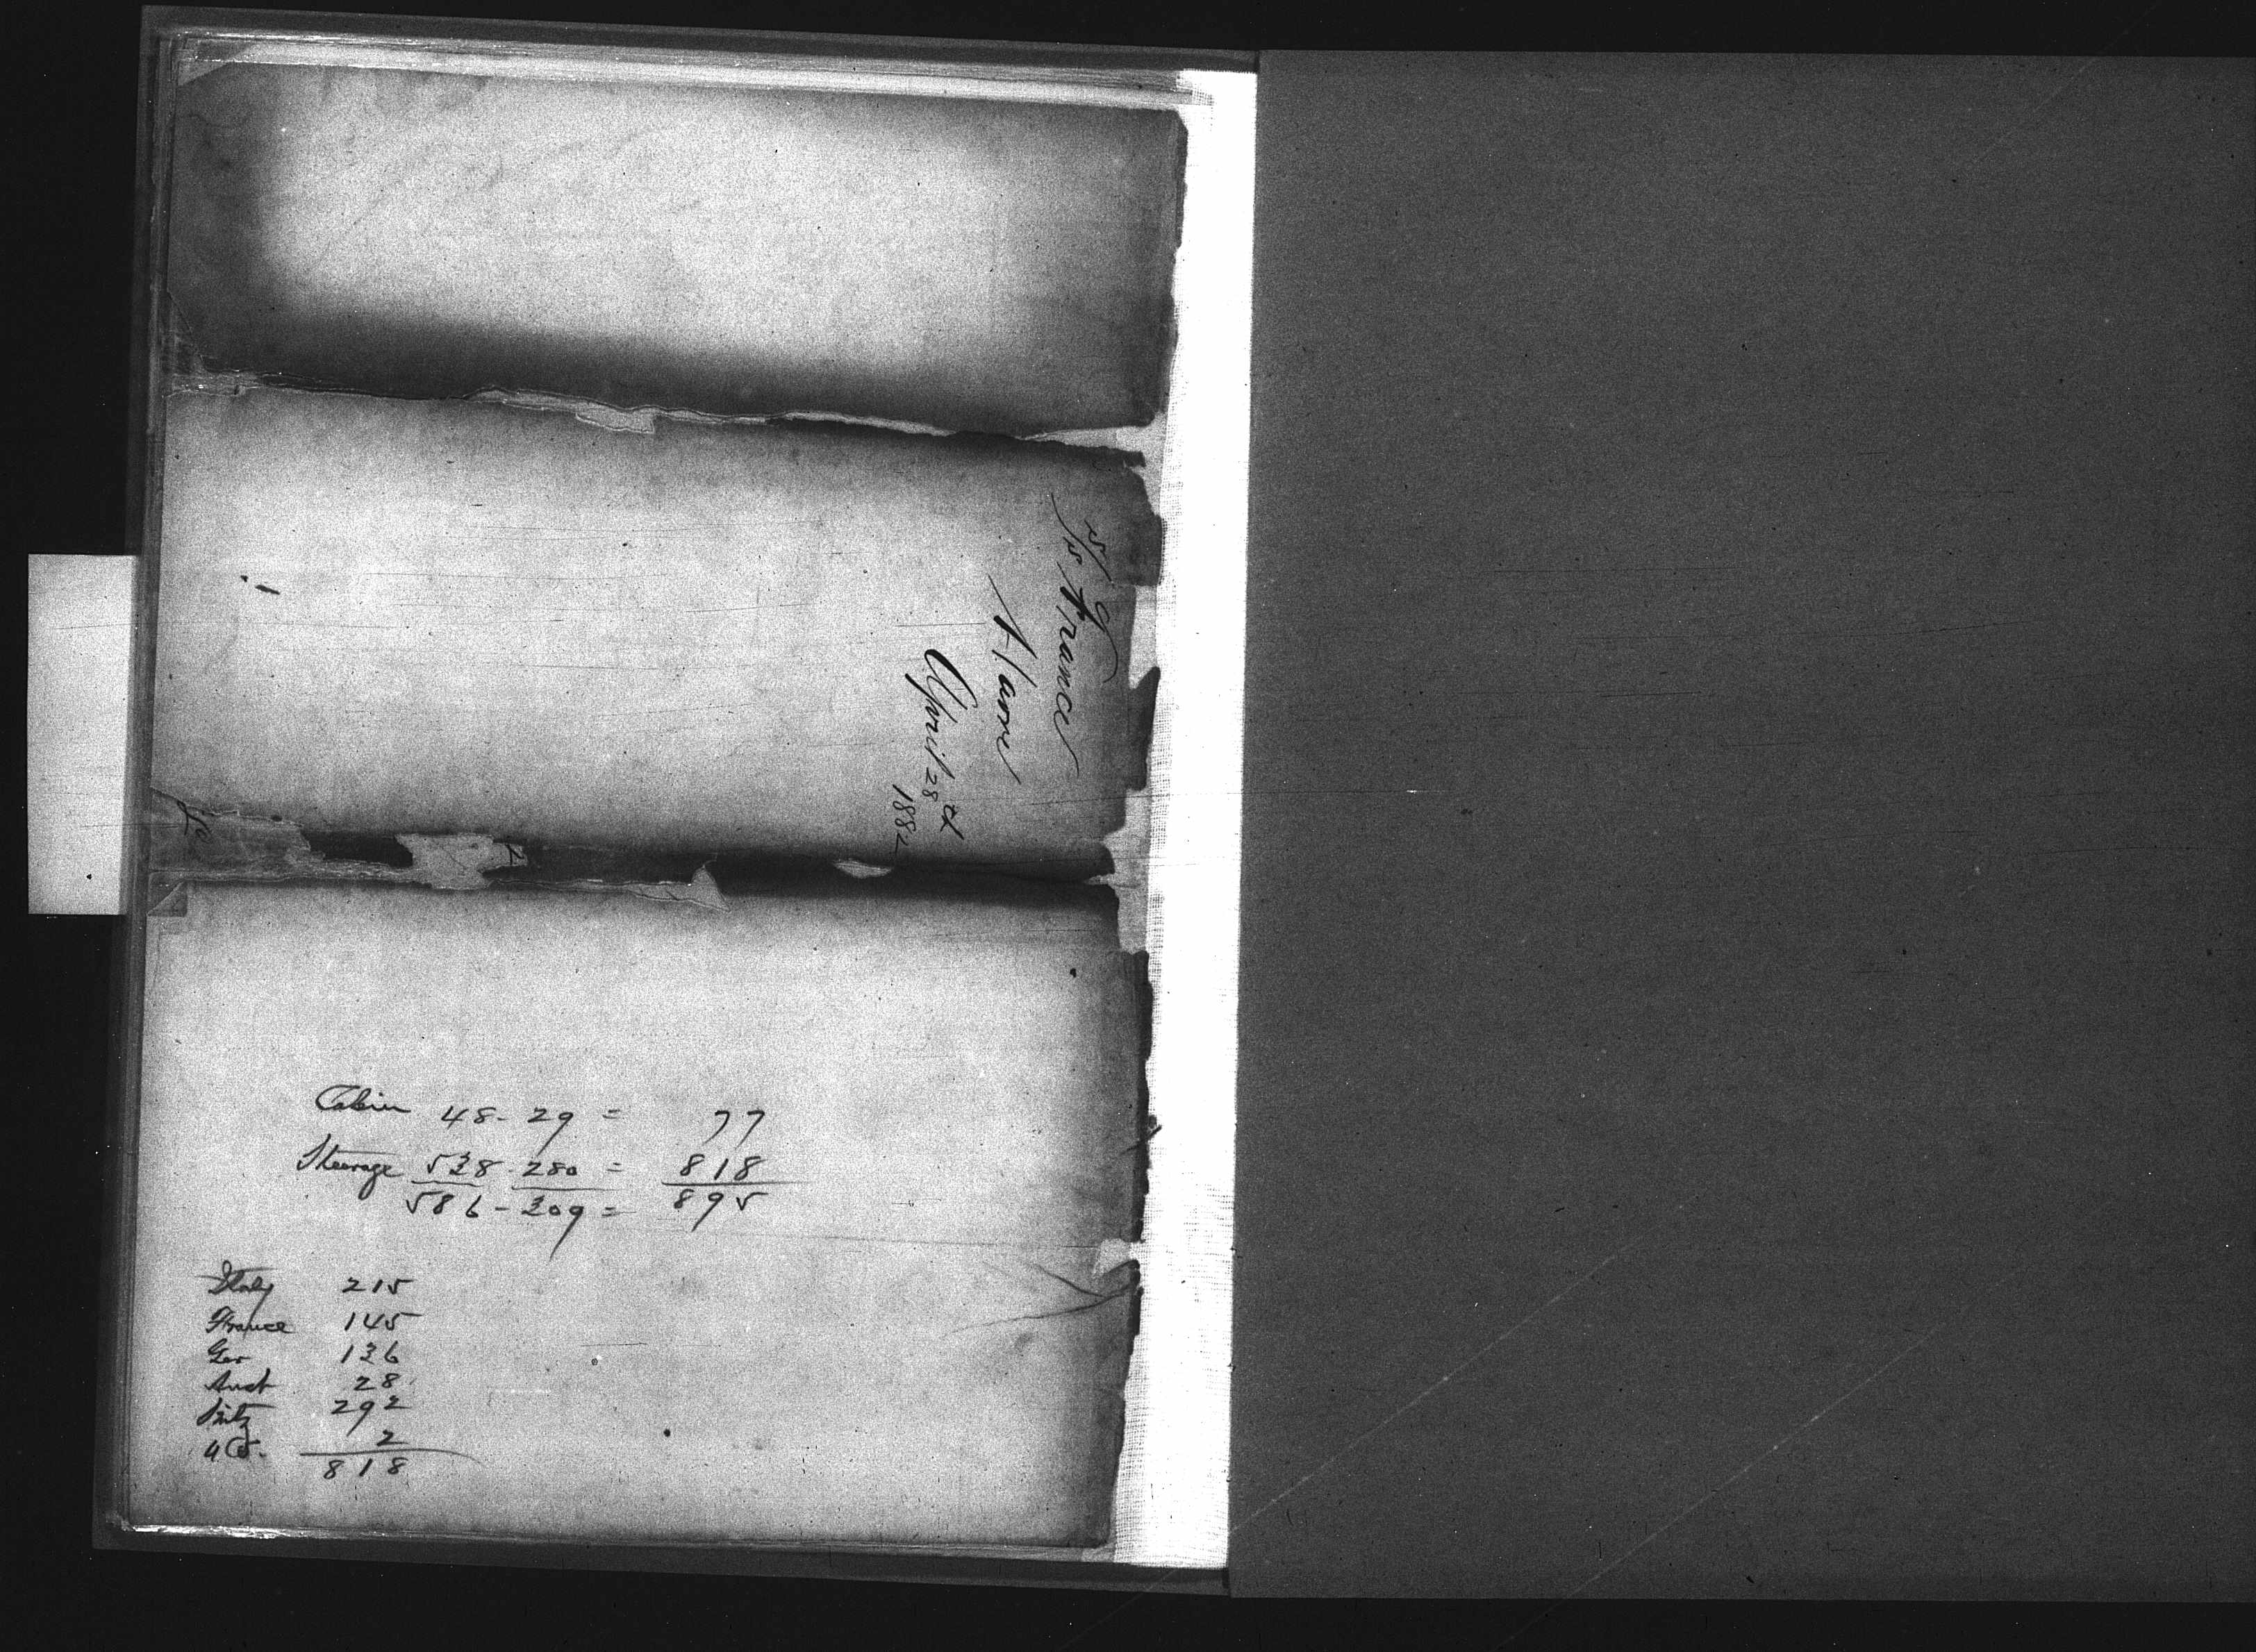 S/S France
Havre
April 28th
1882
Cabin 48 - 29 = 77
Steerage 538 - 280 = 818
586 - 309 = 895
Italy 215
France 145
Ger 136
Aust 28
Sitz 292
2
818